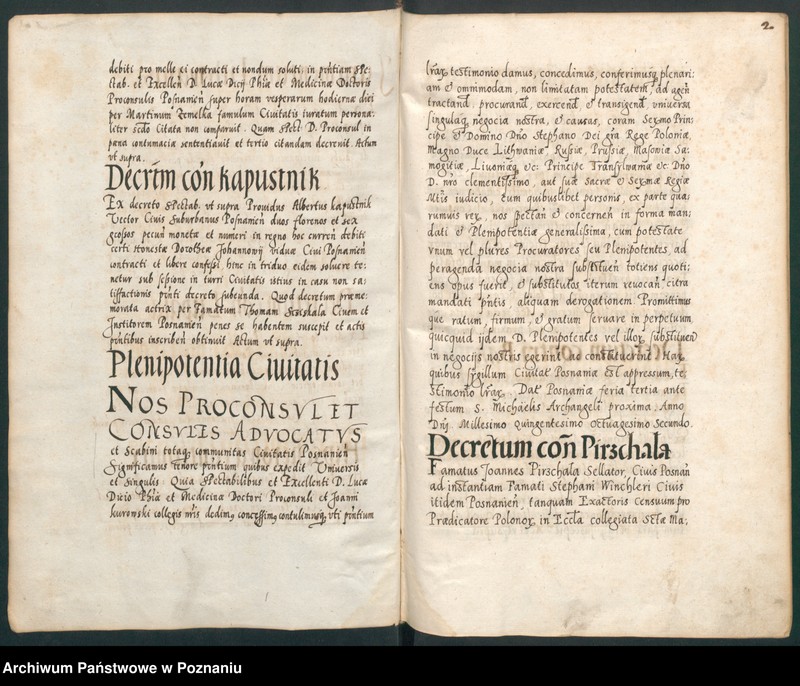 debiti pro melle ei contracti et nondum soluti, in pñtiam spe:
ctab. et Excellen̄ D. Lucæ Dicij Phiæ et Medicinæ Doctoris
Proconsulis Posnanien̄ super horam vesperarum hodiernæ diei
per Martinum Zemelka famulum Civitatis iuratum persona:
liter scdo Citata non comparuit. Quam spect. D. Proconsul in
pœna contumaciæ sententiauit et tertio citandam decreuit. Actum
vt supra.
Decrt̄m cón kapustnik
Ex decreto spectab. vt supra Prouidus Albertus kapustnik
Vector Civis Suburbanus Posnanien̄ duos florenos et sex
grossos pecun̄ monetæ et numeri in regno hoc curren̄ debiti
certi Honestæ Dorotheæ Johannowij viduæ Civi Posnanien̄
contracti et libere confessi hinc in triduo eidem soluere te:
netur sub sessione in turri Civitatis istius in casu non sa:
tisfactionis pñti decreto subeunda. Quod decretum præme:
morata actrix per Famatum Thomam Civem et
Institorem Posnanien̄ penes se habentem suscepit et actis
pñtibus inscriben̄ obtinuit Actum vt supra.
Plenipotentia Ciuitatis
NOS PROCONSVL ET
CONSVLES ADVOCATVS
et Scabini totaq communitas Civitatis Posnanien̄
Significamus tenore pñtium quibus expedit Vniuersis
et singulis. Quia spectabilibus et Excellenti D. Lucæ
Dicio Phiæ et Medicinæ Doctori Proconsul et Joanni
kurowski collegis nr̄is dedimꝯ concessimꝯ contulimusqꝫ, vti pñtium
2
lr̄aꝝ testimonio damus, concedimus, conferimusqꝫ plenari:
am et ommodam, non limitatam potestatem, ad agen̄
tractand, procurand, exercend, & transigend, vniuersa
singulaqꝫ negocia nostra, & causas, coram Serēmo Prin:
cipe & Domino Dño Stephano Dei gr̄a Rege Poloniæ,
Magno Duce Lithwaniæ, Russiæ, Prussiæ, Masoviæ Sa:
mogitiæ, Liuoniæqꝫ &c: Principe Transyluaniæ &c Dño
D. nr̄o clementissimo, aut suæ Sacræ & Serēmæ Regiæ
Mtīs iudicio, cum quibuslibet personis, ex parte qua:
rumuis reꝝ, nos spectan̄ & concernen̄ in forma man:
dati & Plenipotentiæ generalissima, cum potestate
vnum vel plures Procuratores seu Plenipotentes, ad
peragenda negocia nostra substituen̄ totiens quoti:
ens opus fuerit, & substitutos iterum reuocan̄ citra
mandati pñtis, aliquam derogationem. Promittimus
que ratum, firmum, & gratum seruare in perpetuum
quicquid ijdem D. Plenipotentes vel illoꝝ substituen̄
in negocijs nostris egerint ac constituerint. Haꝝ
quibus sygillum Ciuitat̄ Posnaniæ est appressum, te:
stimonio lr̄aꝝ. Dat̄ Posnaniæ feria tertia ante
festum S. Michaelis Archangeli proxima. Anno
Dn̄j Millesimo quingentesimo Octuagesimo Secundo.
Decretum cōn Pirzchala
Famatus Joannes Pirzchala Sellator, Ciuis Posnan̄
ad instantiam Famati Stephani Winchleri Ciuis
itidem Posnanien̄, tanquam Exactoris Censuum pro
Prædicatore Polonoꝝ, in Eccl̄a collegiata Sctæ Ma;
Archiwum Państwowe w Poznaniu